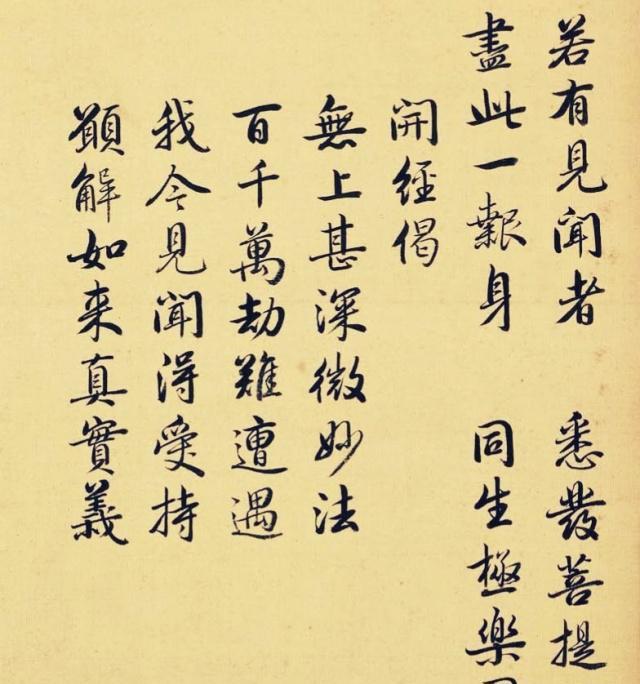 若有見聞者 悉發菩提
盡此一報身 同生極樂
開經偈
無上甚深微妙法
百千萬劫難遭遇
我今見聞得受持
願解如来真實義